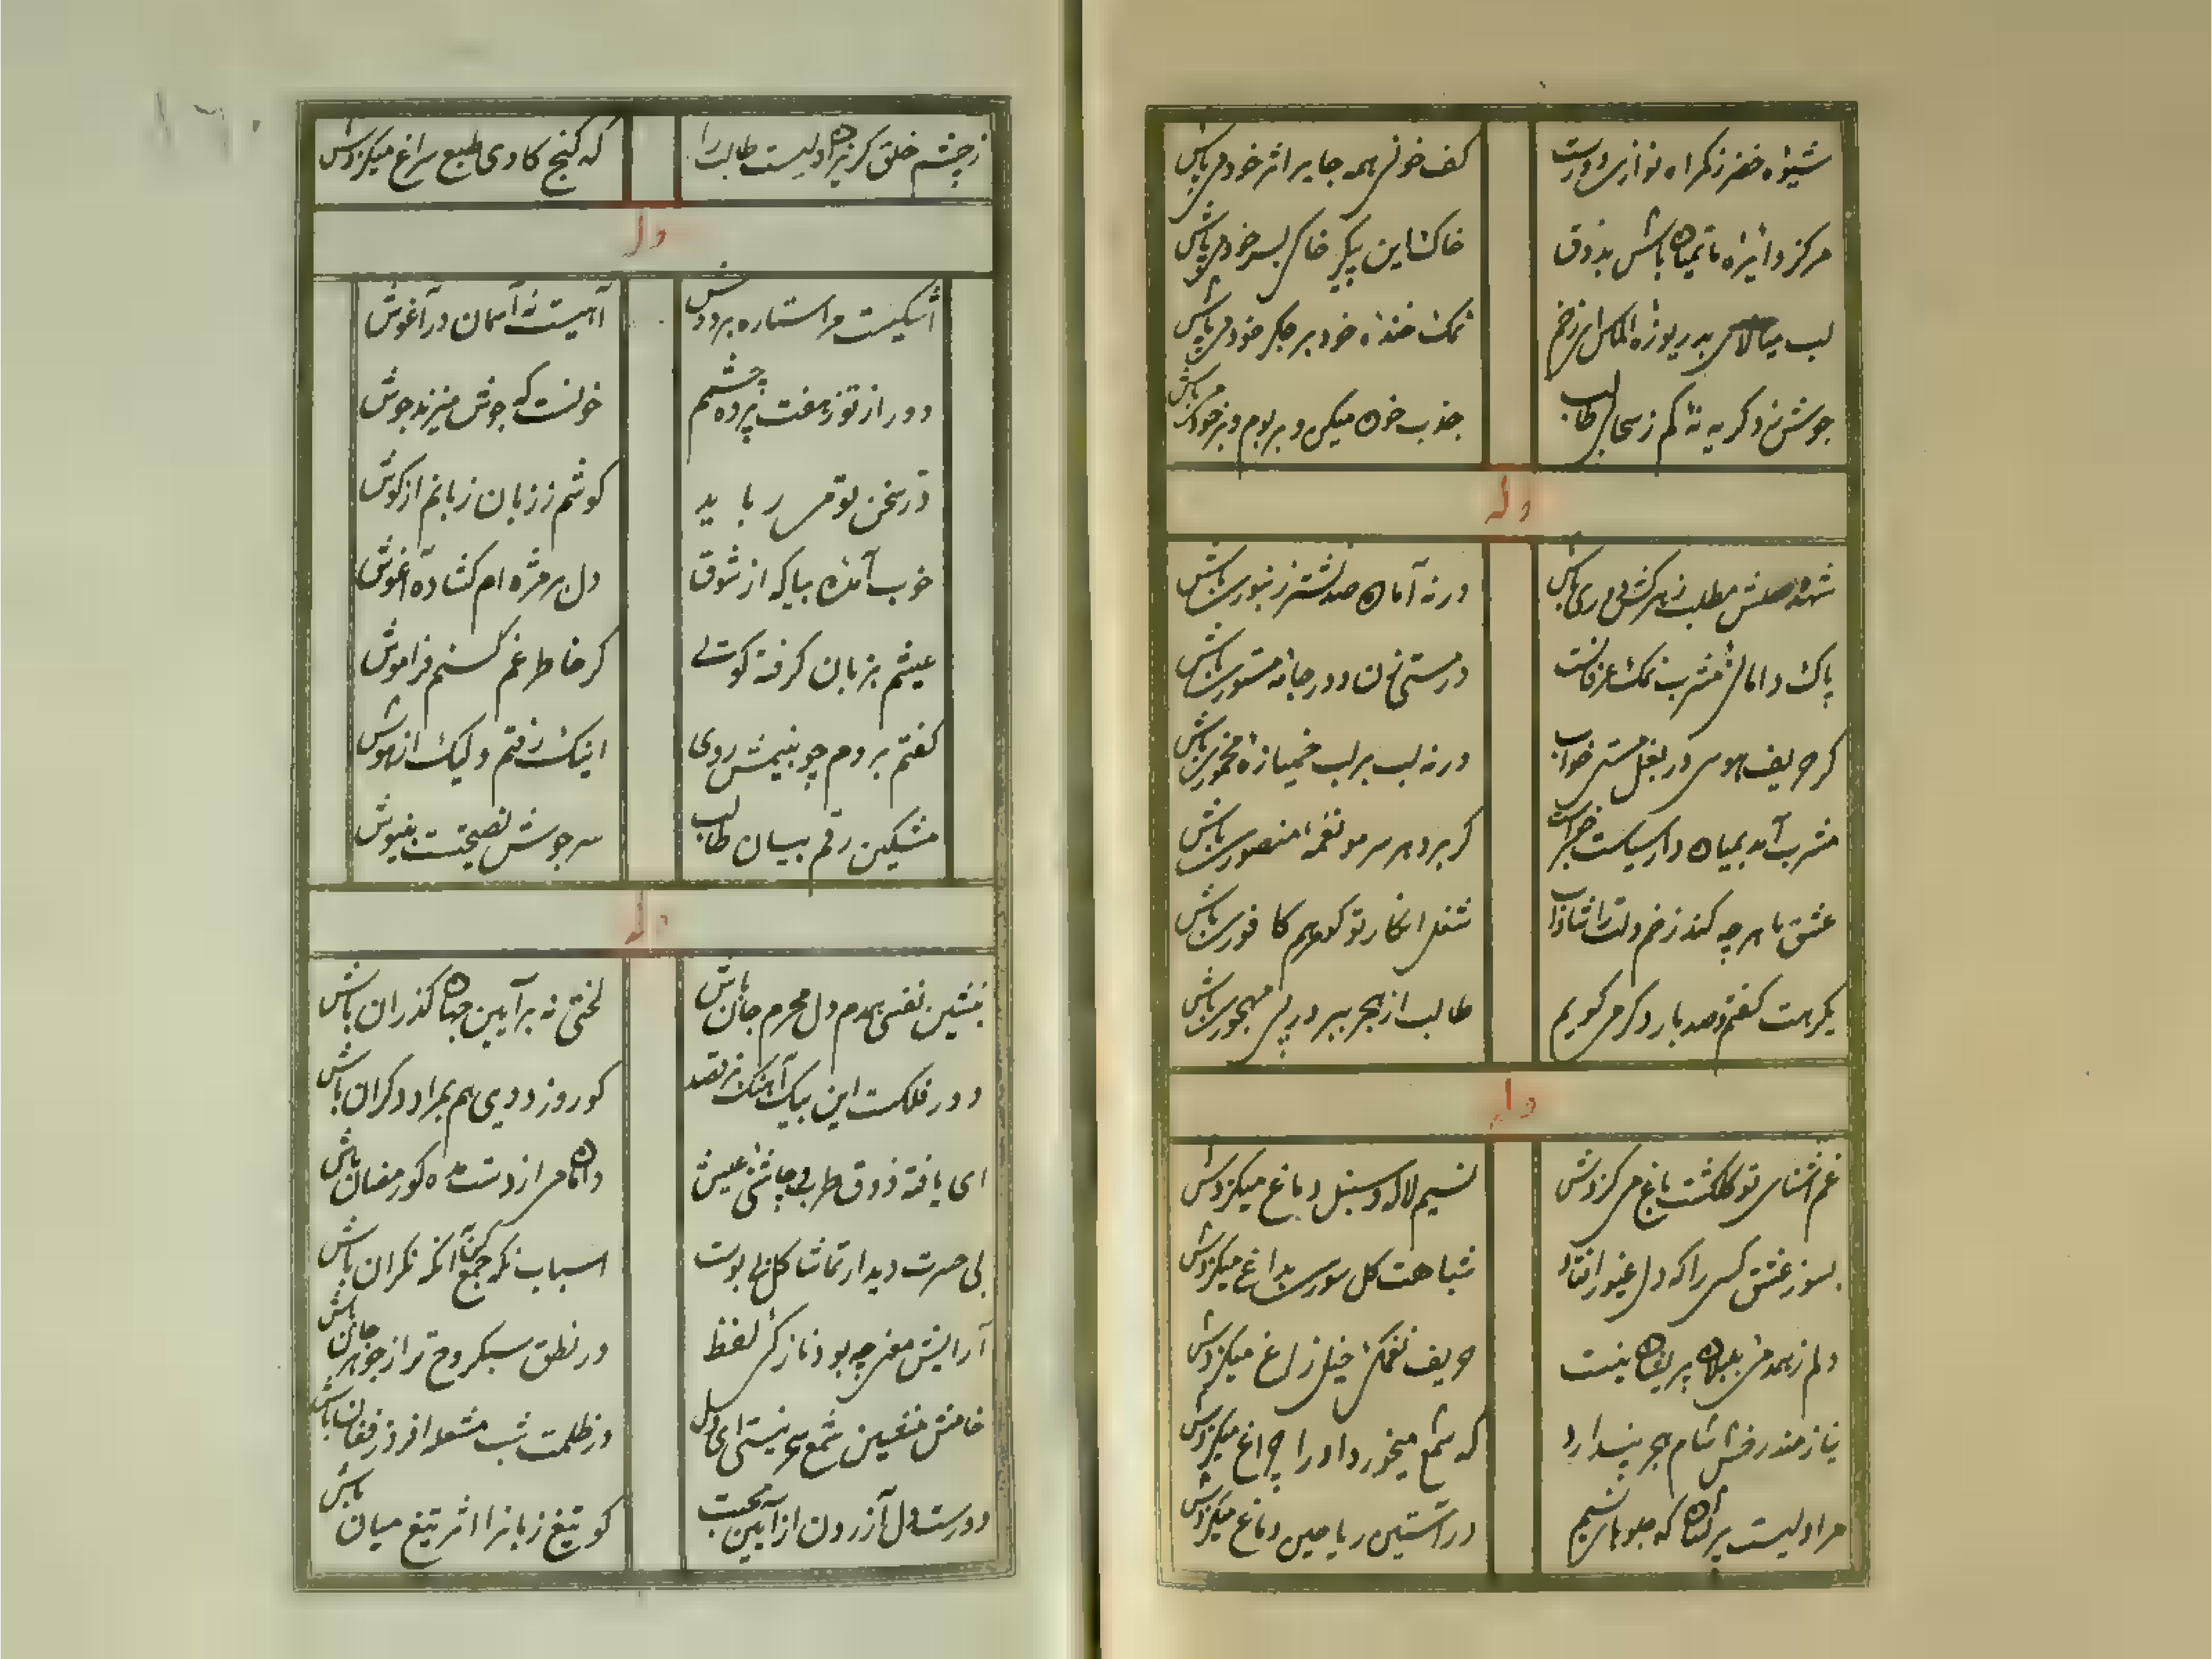 شیوه خضر ز کمراه نوازی دورست کف خونی همه جا بر اثر خود می‌پاش
مرکز دایره ماتمیان باش بذوق خاک این پیکر خاکی بسر خود می‌پاش
لب میالای بدریوزه الماس ای زخم نمک خنده خود بر جکر خود می‌پاش
جوش زد کریه نه کم ز سحابی طالب جذب خون میکن و بر بوم و بر خود می‌پاش
وله
شهد وصلش مطلب زهرکش دوری باش ورنه آماده صد نشتر زنبوری باش
پاک دامانی مشرب نمک عرفانست در مستی زن و در جامه مستوری باش
کر حریف هوسی در بغل مستی خواب ورنه لب بر لب خمیازه مخموری باش
مشرب آمد بمیان دار سیاست کو برو هر سر مو نغمه منصوری باش
عشق با هر چه کند زخم دلت را شاداب شغل انکار تو کو مرهم کافوری باش
یکرهت کفتم و صد بار دکر می‌کویم طالب از هجر ببر در پی مهجوری باش
وله
غم آشنای تو کلکشت باغ می‌کزدش نسیم لاله و سنبل دماغ میکزدش
بسوز عشق کسی را که دل غیور افتاد شباهت کل سوری بداغ میکزدش
دلم ز همدمی بلبلان پریشان نیست حریف نغمکی خیل زاغ میکزدش
نیازمند رخش شام هجر پندارد که شمع میخورد او را چراغ میکزدش
مرا دلیست پریشان که جلوهای نسیم در آستین ریاحین دماغ میکزدش
ز چشم خلق کریزان دلیست طالب را که کنج کاوی طبع سراغ میکزدش
وله
اشکیست مرا ستاره بر دوش آهیست نه آسمان در آغوش
دور از تو ز هفت پرده چشم خونست که جوش میزند جوش
در سخن تو می رباید کوشم ز زبان زبانم از کوش
خوب آمده بیا که از شوق دل بر مژه ام کشاده آغوش
عیشم بزبان کرفته کوئی کر خاطر غم کنم فراموش
کفتم بروم چو بینمش روی اینک رفتم ولیک از هوش
مشکین رقم بیان طالب سرجوش نصیحتست بنیوش
وله
بنشین نفسی همدم دل محرم جان باش لختی نه بر آیین جهان کذران باش
دور فلکست این بیک آهنک نرقصد کو روز دویی هم بمراد دکران باش
ای یافته ذوق طرب چاشنی عیش دامان می از دست مده کو رمضان باش
بی حسرت دیدار تماشا کل بی بوست اسباب نکه جمع کن آنکه نکران باش
آرایش معنی چه بود نازکی لفظ در نطق سبکروح تر از جوهر جان باش
خامش منشین شمع سحر نیستی ای دل در ظلمت شب مشعله افروز فغان باش
دورست دل آزردن از آیین محبت کو تیغ زبانرا اثر تیغ میان باش